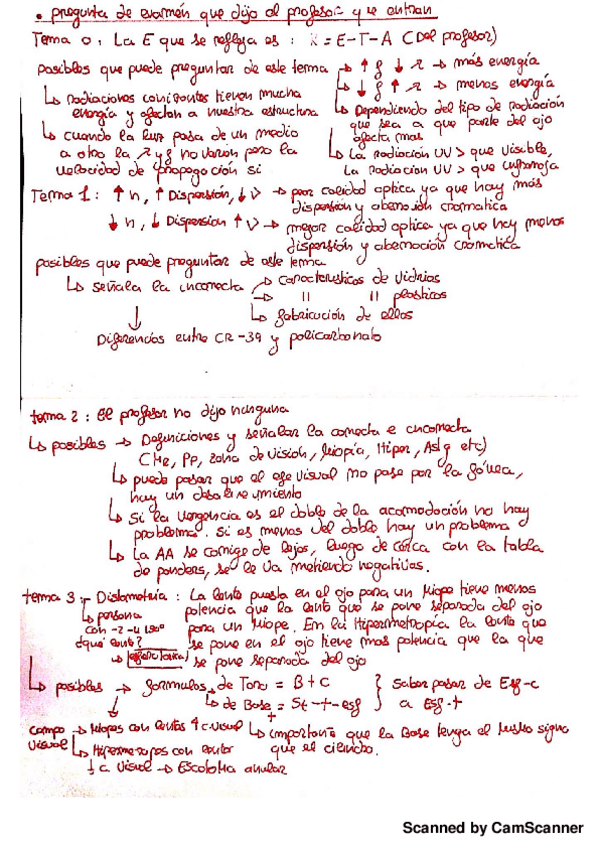 • pregunta de examén que dijo el profesor y re entran
Tema 0: La E que se refleja es: R = E-T-A (Del profesor)
Posibles que puede preguntar de este tema → ↑ f ↓ λ → más energía
↓ f ↑ λ → menos energía
↳ Radiaciones ionizantes tienen mucha energía y afectan a nuestra estructura
↳ Dependiendo del tipo de radiación que sea a que parte del ojo afecta mas
↳ cuando la luz pasa de un medio a otro la λ y f no varian pero la velocidad de propagación si
↳ La radiación UV > que visible, La radiacion UV > que infraroja
Tema 1: ↑ n, ↑ Dispersión, ↓ V → peor calidad optica ya que hay más dispersión y aberración cromatica
↓ n, ↓ Dispersion ↑ V → mejor calidad optica ya que hay menos dispersión y aberración cromatica
posibles que puede preguntar de este tema
↳ señala la incorrecta → Caracteristicas de vidrios
→ " " plasticos
↳ fabricación de ellos
↓
Diferencias entre CR-39 y policarbonato
tema 2: El profesor no dijo ninguna
↳ posibles → Definiciones y señalar la correcta e incorrecta
(, PP, zona de visión, Miopía, Hiper, Astg etc)
↳ puede pasar que el eje visual no pase por la fóvea,
hay un
↳ Si la vergencia es el doble de la acomodación no hay
problema. si es menos del doble hay un problema
↳ La AA se corrige de lejos, luego de cerca con la tabla
de ponders, se le va metiendo negativas.
tema 3:- Distometría: La lente puesta en el ojo para un Miope tiene menos
potencia que la lente que se pone separada del ojo
para un Miope. En la Hipermetropía la lente que
se pone en el ojo tiene mas potencia que la que
se pone separada del ojo
↳ persona
con -2 -4 180°
¿qué lente?
↳ esferotorica
↳ posibles → formulas de Toro = B+C
↳ de Base = St - t - esf
} Saber pasar de Esf-c
a Esf-t
↓
campo visual → Miopes con lentes ↑ c.visual
↳ importante que la Base tenga el mismo signo
que el cilindro.
↳ Hipermetropes con lentes
↓ c. visual → Escotoma anular
Scanned by CamScanner